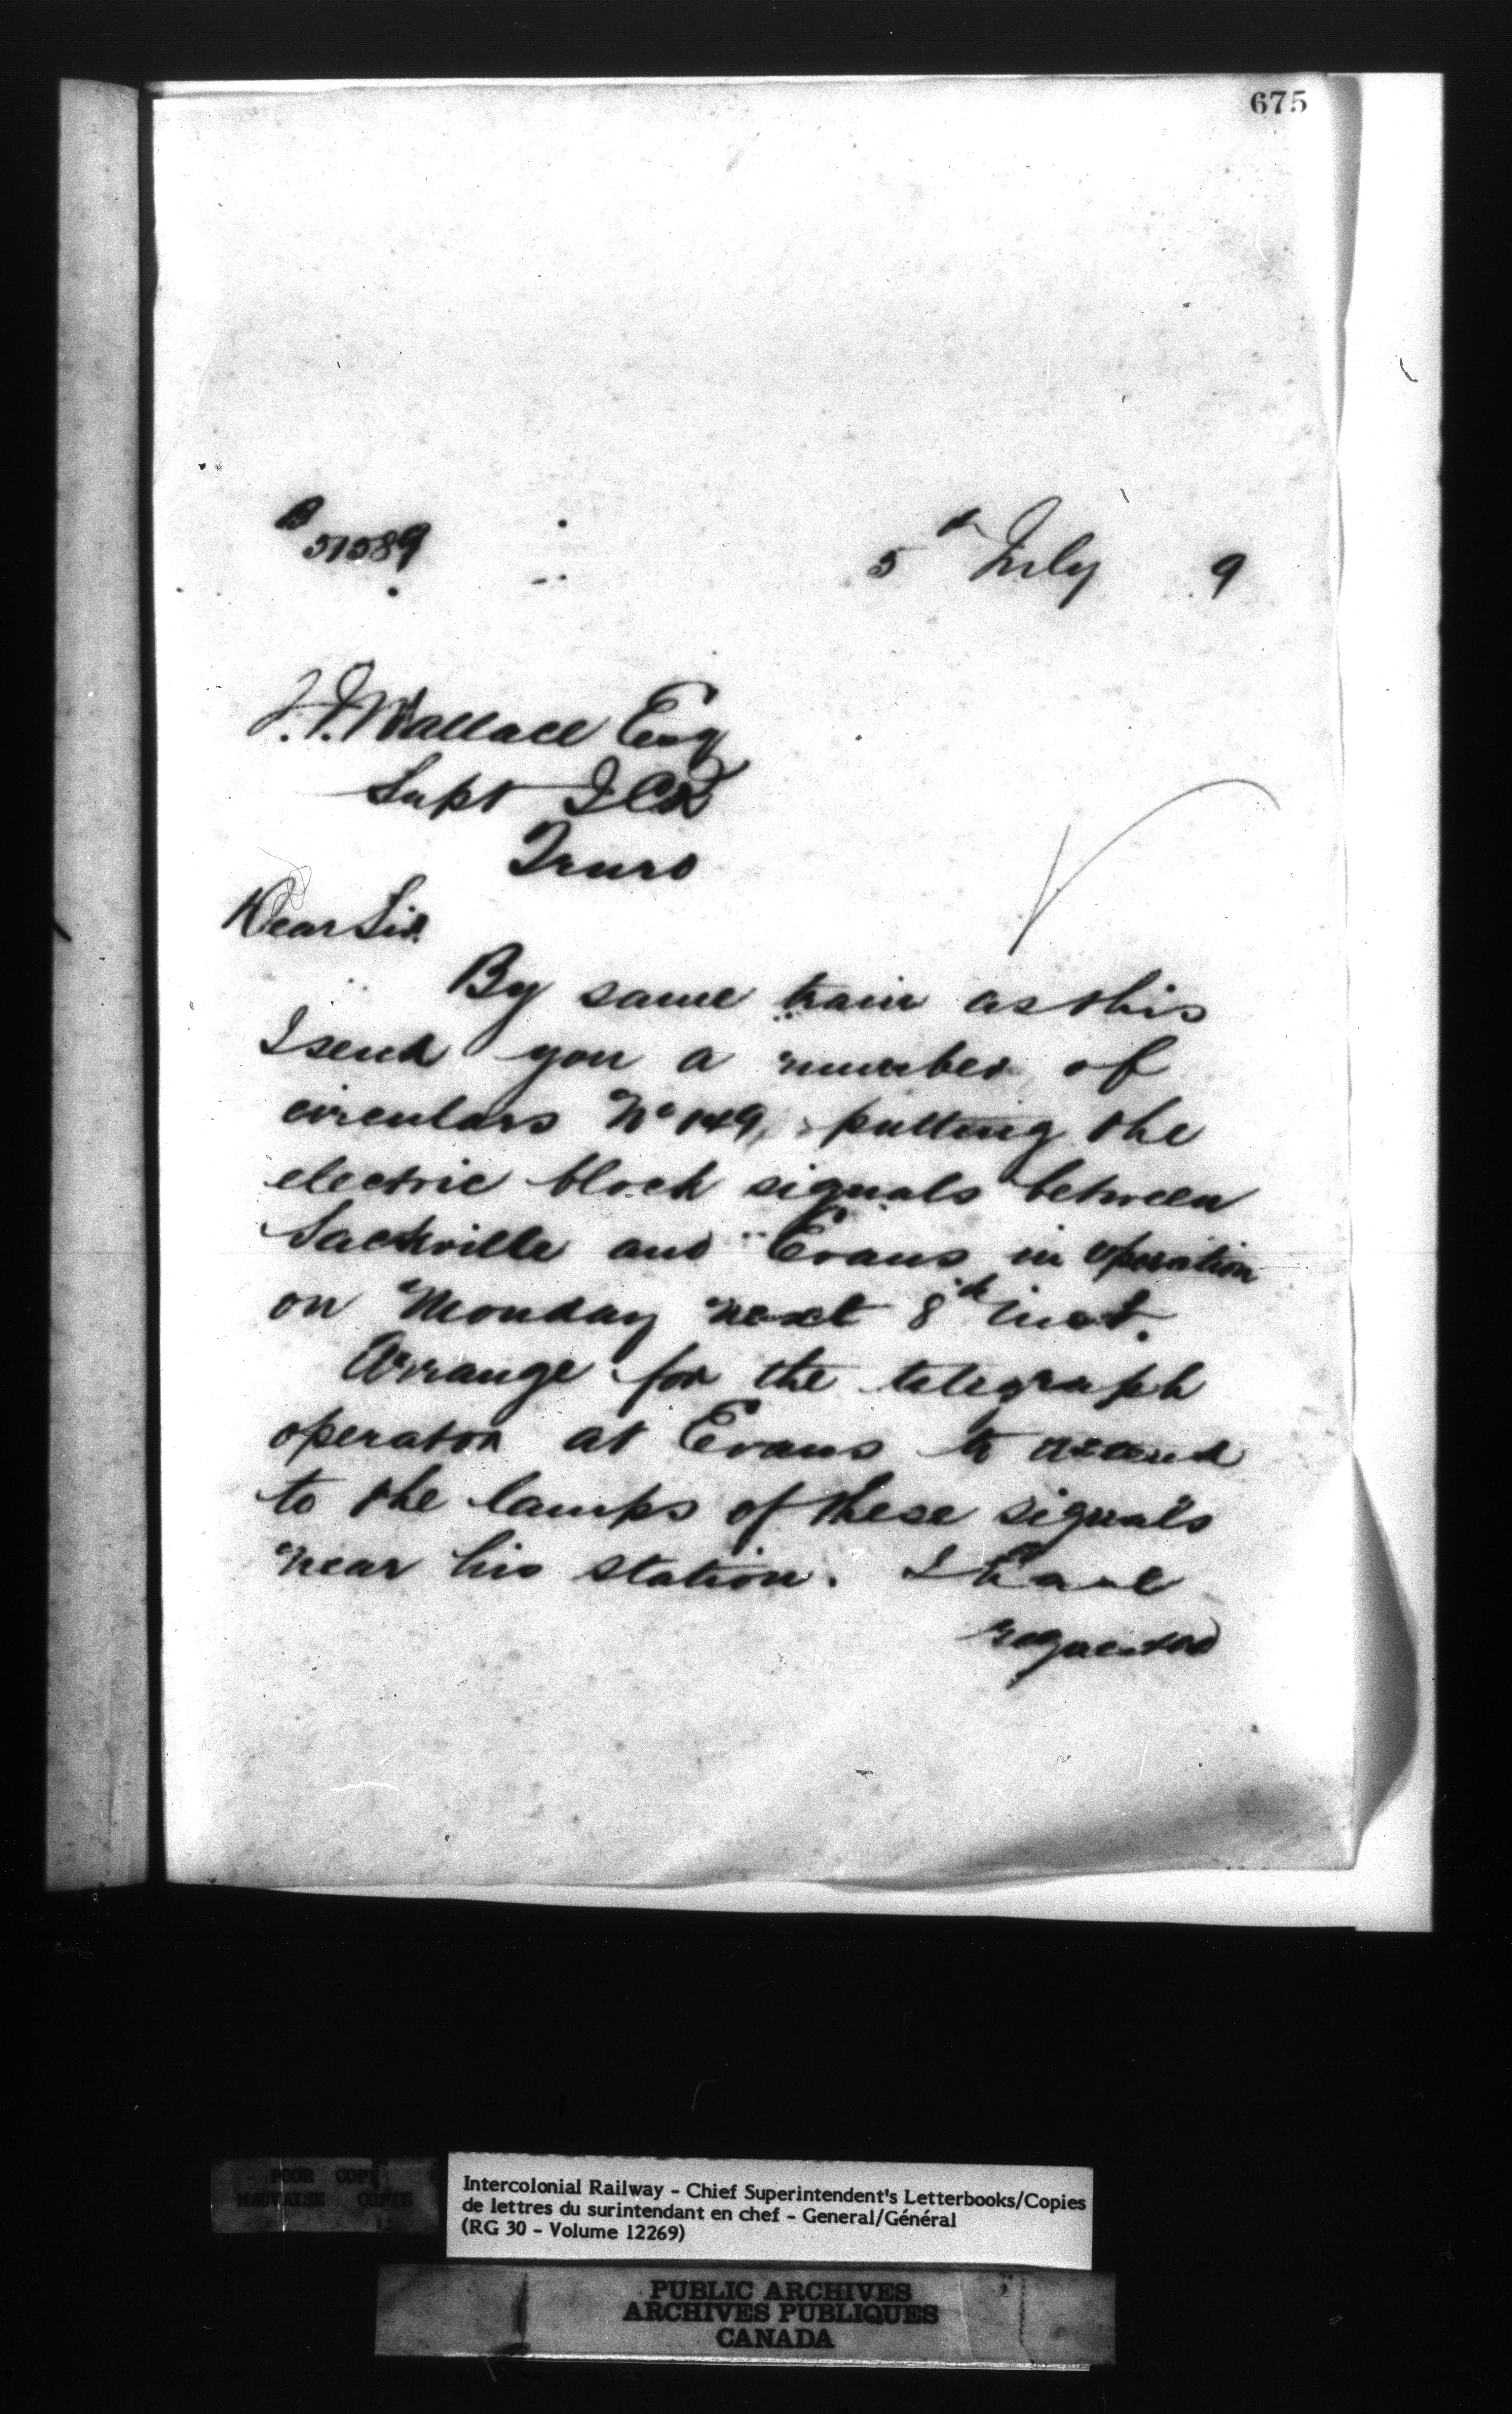 675
B
51589
5th July 9
J. J. Wallace Esq
Supt ICR
Truro
Dear Sir
By same train as this
I send you a number of
circulars No 149, putting the
electric block signals between
Sackville and Evans in operation
on Monday next 8th inst.
Arrange for the telegraph
operator at Evans to attend
to the lamps of these signals
near his station. I have
requested
POOR COPY
MAUVAISE COPIE
Intercolonial Railway - Chief Superintendent's Letterbooks/Copies
de lettres du surintendant en chef - General/Général
(RG 30 - Volume 12269)
PUBLIC ARCHIVES
ARCHIVES PUBLIQUES
CANADA